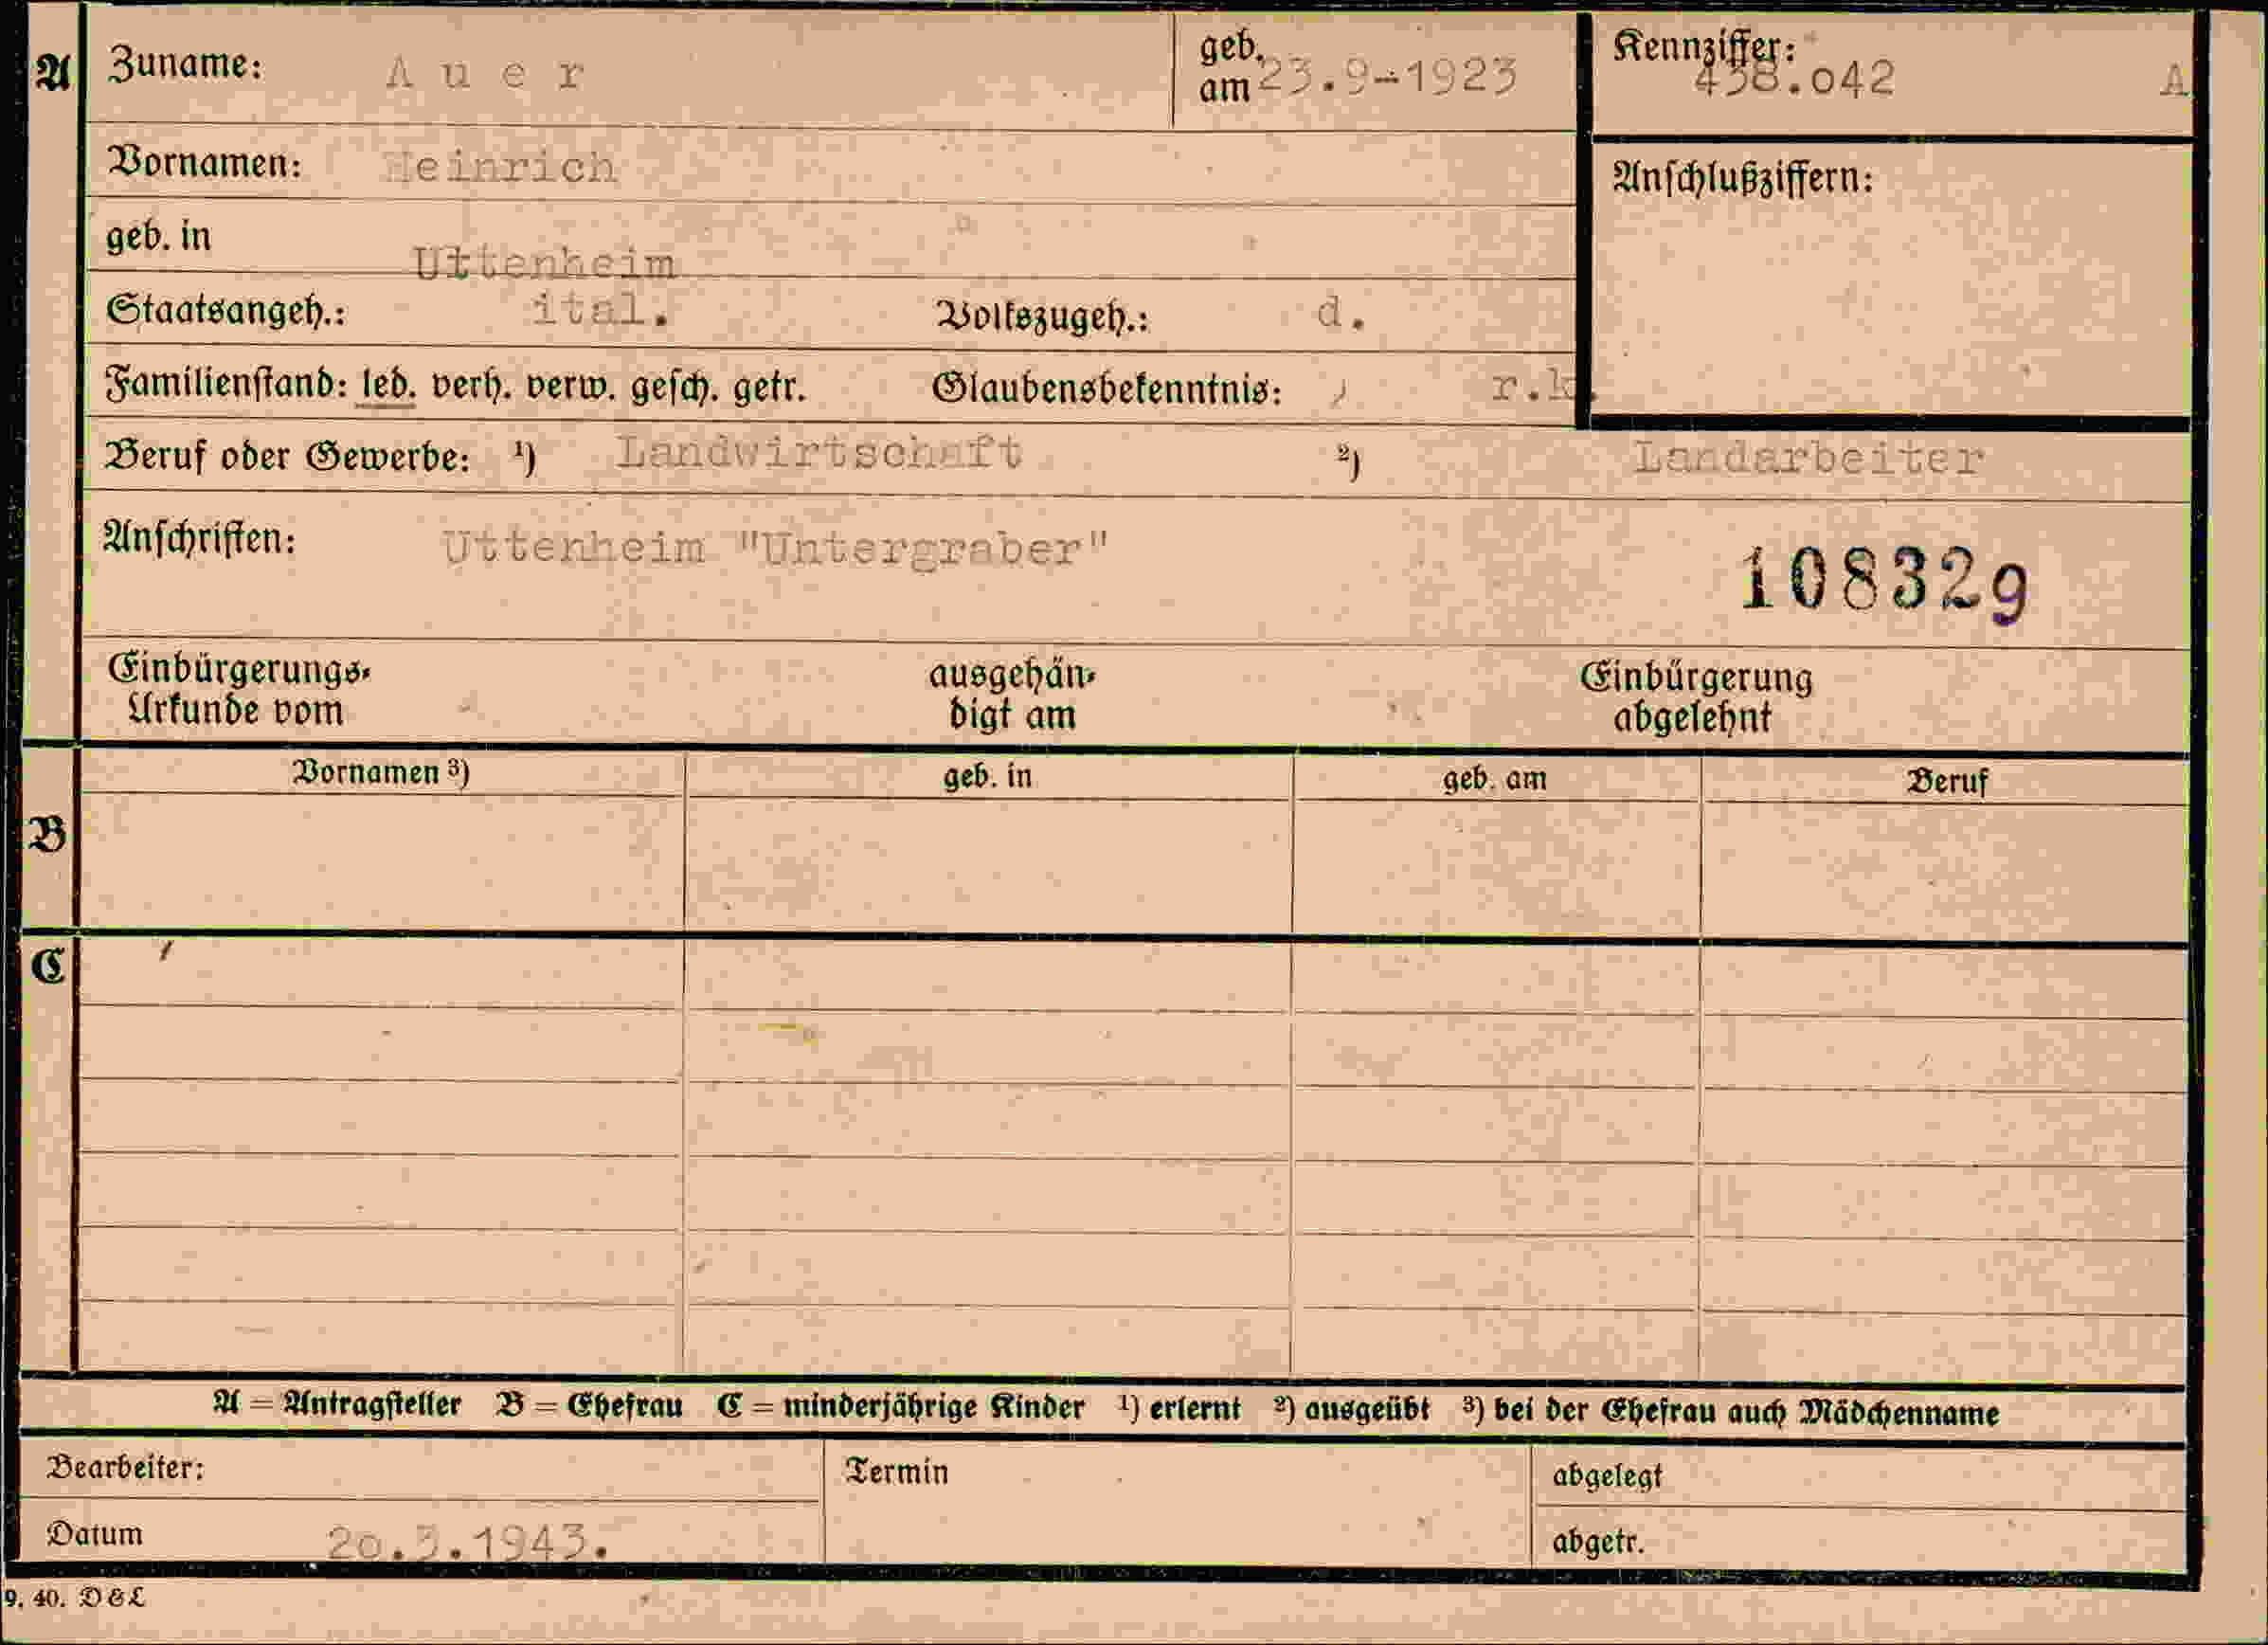 A Zuname: Auer geb. am 23.9-1923 Kennziffer: 438.042 A
Vornamen: Heinrich Anschlußziffern:
geb. in Uttenheim
Staatsangeh.: ital. Volkszugeh.: d.
Familienstand: led. verh. verw. gesch. getr. Glaubensbekenntnis: r.k.
Beruf oder Gewerbe: ¹) Landwirtschaft ²) Landarbeiter
Anschriften: Uttenheim "Untergraber"
108329
Einbürgerungs- Urkunde vom ausgehän- digt am Einbürgerung abgelehnt
B Vornamen ³) geb. in geb. am Beruf
C
A = Antragsteller B = Ehefrau C = minderjährige Kinder ¹) erlernt ²) ausgeübt ³) bei der Ehefrau auch Mädchenname
Bearbeiter: Termin abgelegt
Datum 20.3.1943. abgetr.
9. 40. D&L